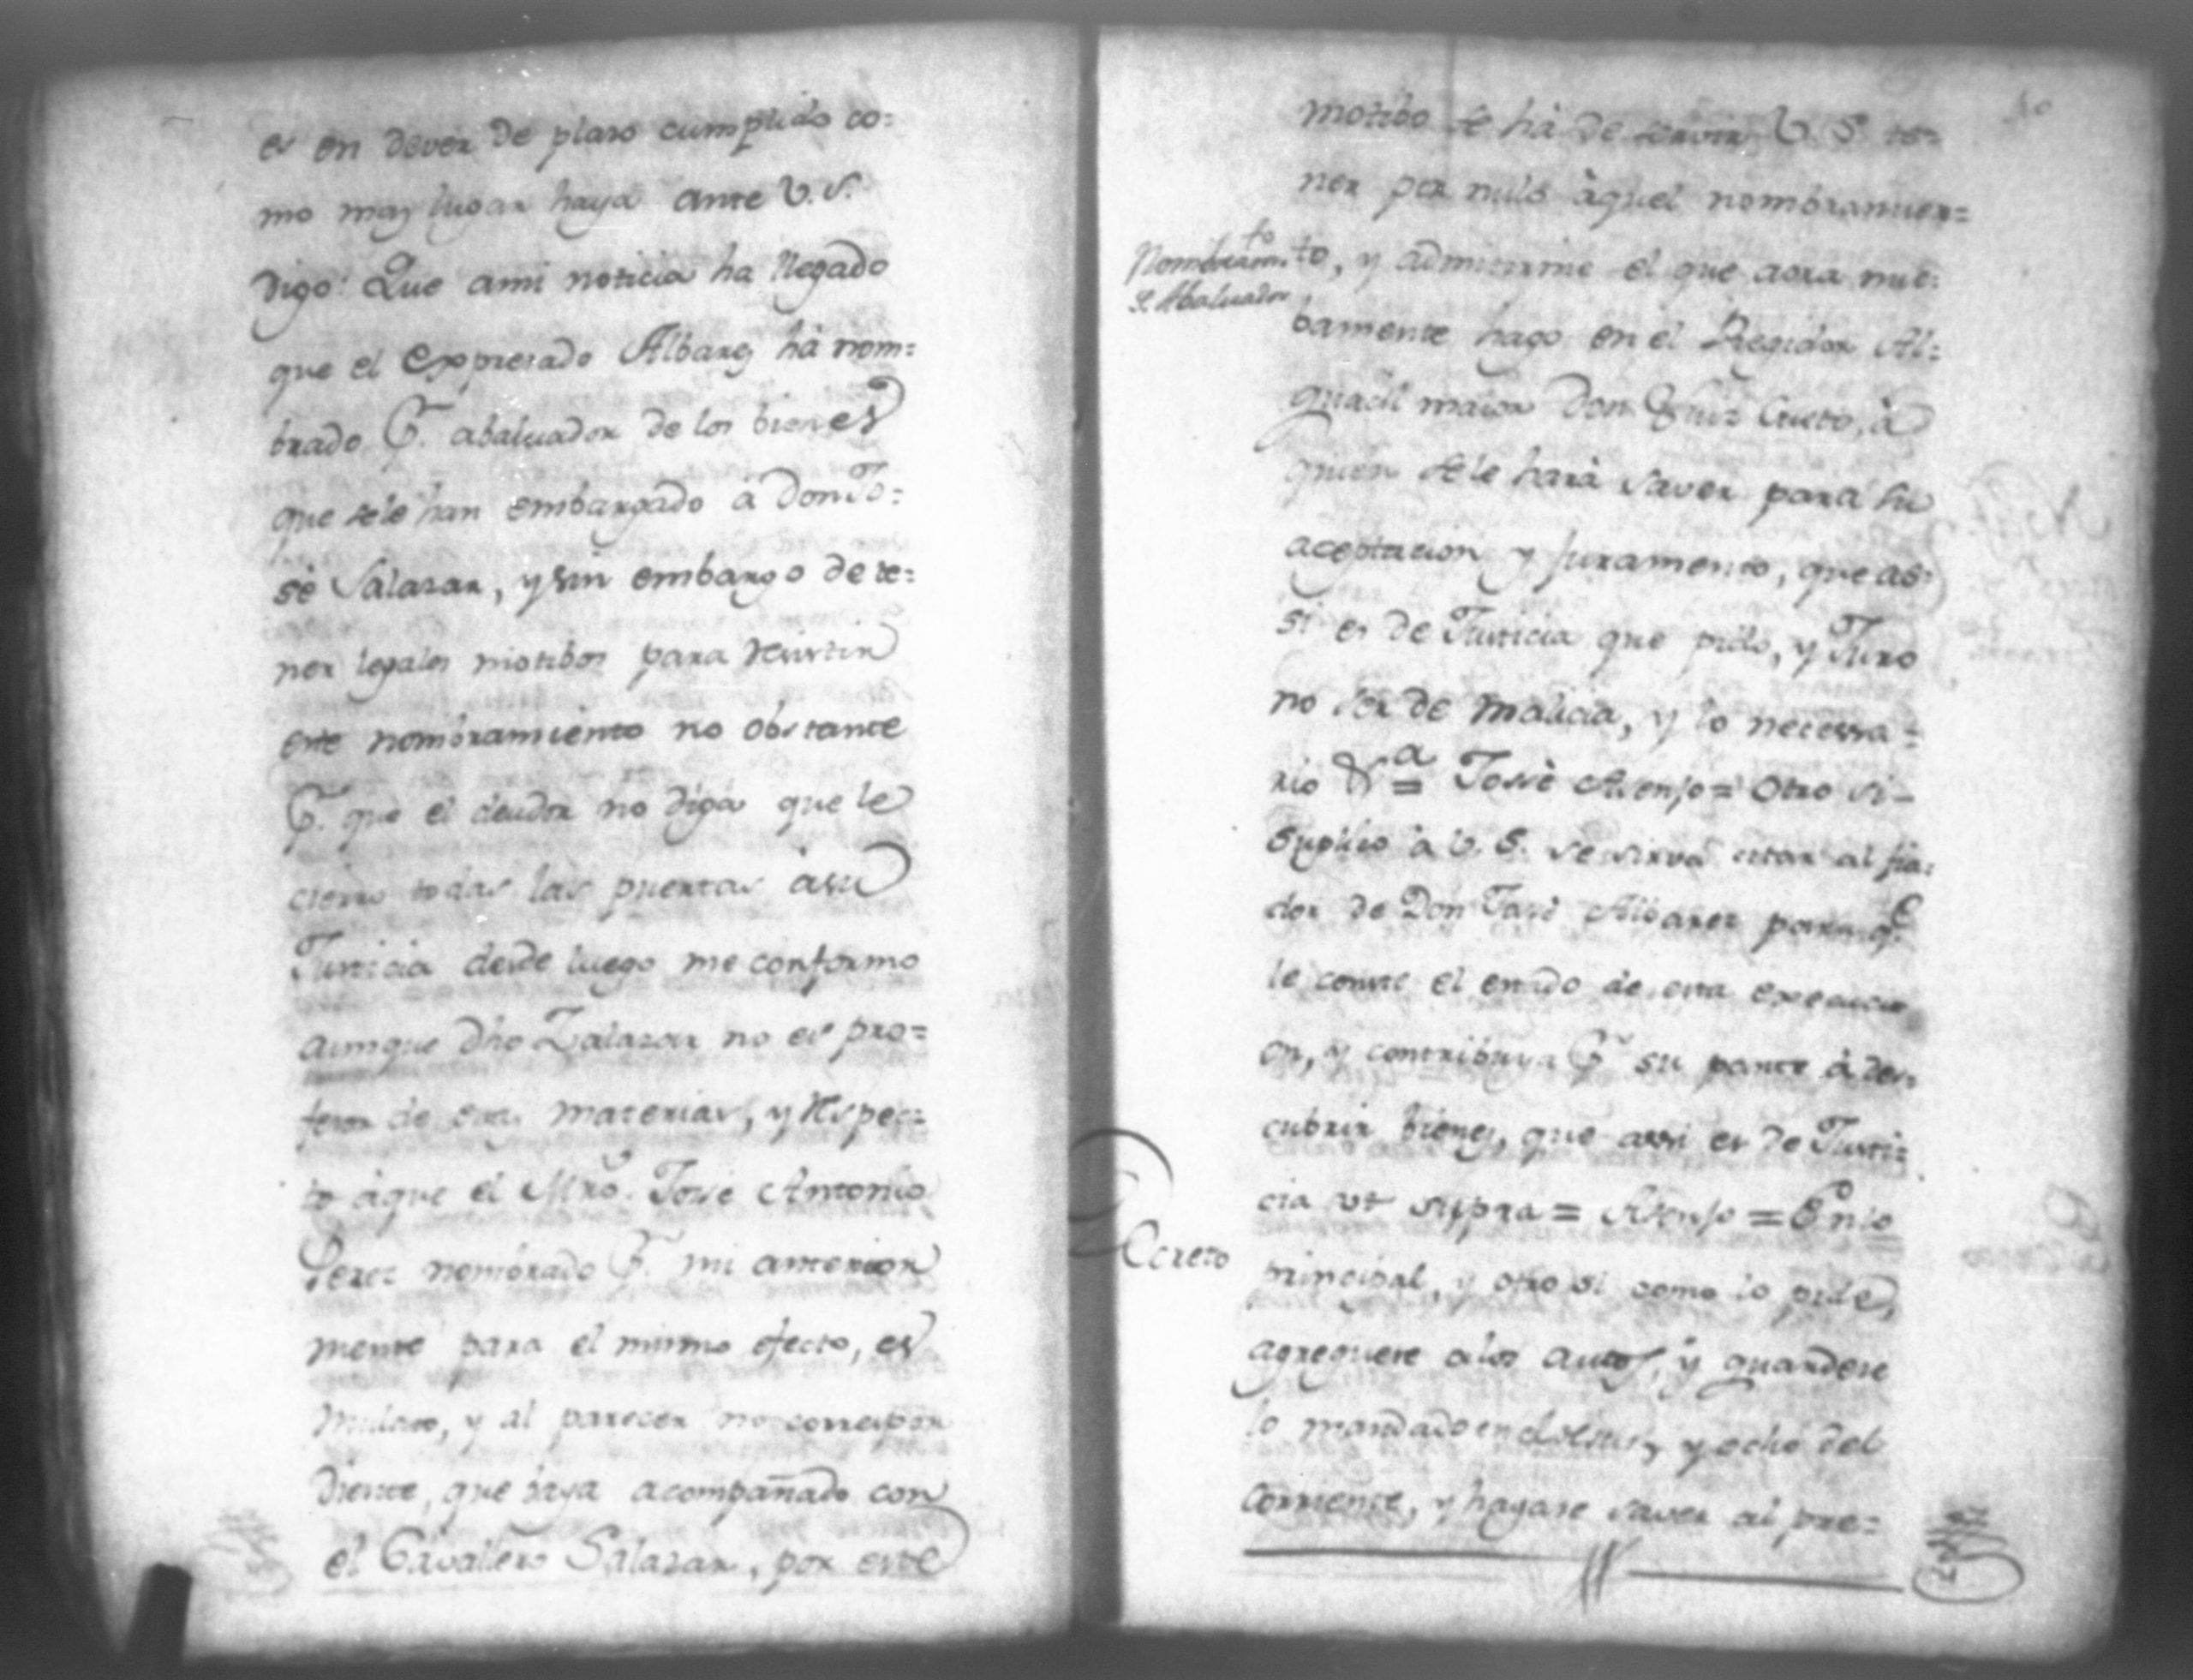 es en dever de plaso cumplido co=
mo mas lugar haya ante V. S.
Digo: Que ami noticia ha llegado
que el expresado Albarez hà nom=
brado P.r abaluador de los bienes
que sele han embargado à Don Jo=
sè Salazar, y sin embargo de te=
ner legales motibos para resistir
este nombramiento no obstante
P.r que el deudor no diga que le
cierro todas las puertas àsu
Justicia desde luego me conformo
aunque dho Zalazar no es pro=
fesor de esas materias, y respec=
to àque el Mro. Josse Antonio
Perez nombrado P.r mi anterior
mente para el mismo efecto, es
Mulato, y al parecer no correspon
diente, que vaya acompañado con
el Cavallero Salazar, por este
motibo se hà de servir V. S. te=
ner por nulo àquel nombramien=
Nombram.to
de Abaluador
to, y admitirme el que aora nue=
bamente hago en el Regidor Al=
guacil maior Don Luiz Cueto, à
quien sele harà saver para su
aceptacion y juramento, que as=
si es de Justicia que pido, y Juro
no ser de malicia, y lo necessa=
rio &.a = Jossè Asenjo = Otro si-
Suplico à V. S. se sirva citar al fia=
dor de Don Josè Albarez para q.e
le conste el estado de esta execuci
on, y contribuya P.r su parte à des=
cubrir bienes, que assi es de Justi=
cia ut supra = Asenjo = En lo
Decreto
principal, y otro si como lo pide,
agreguese alos autos, y guardese
lo mandado en el de siete y ocho del
corriente, y hagase saver al pre=